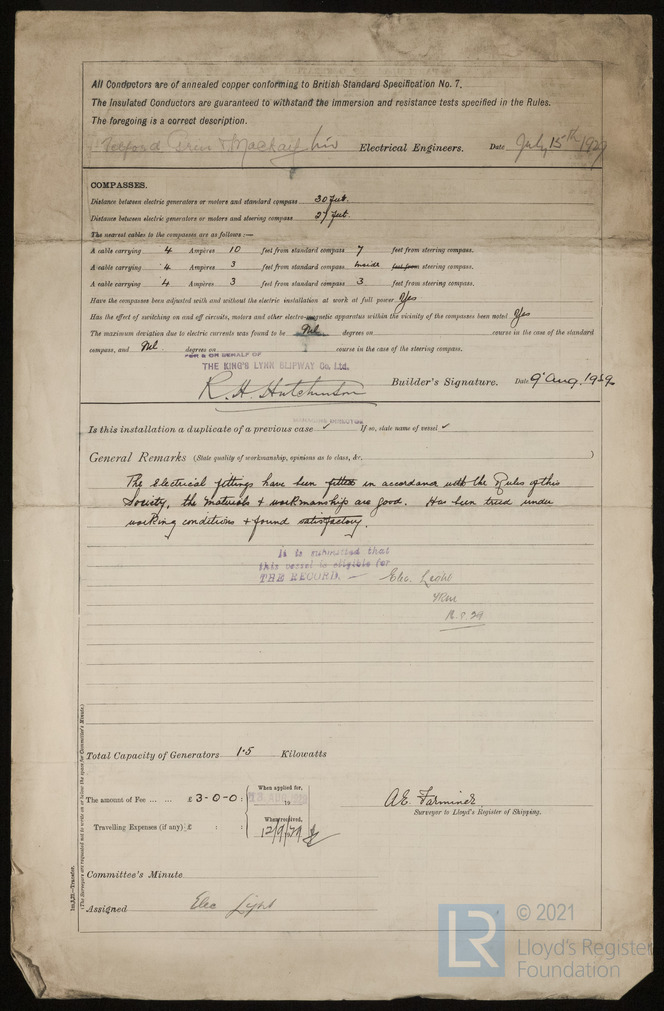 All Conductors are of annealed copper conforming to British Standard Specification No. 7.
The Insulated Conductors are guaranteed to withstand the immersion and resistance tests specified in the Rules.
The foregoing is a correct description.
Electrical Engineers. Date July 15th 1929
COMPASSES.
Distance between electric generators or motors and standard compass 30 feet.
Distance between electric generators or motors and steering compass 27 feet.
The nearest cables to the compasses are as follows:—
A cable carrying 4 Ampères 10 feet from standard compass 7 feet from steering compass.
A cable carrying 4 Ampères 3 feet from standard compass inside feet from steering compass.
A cable carrying 4 Ampères 3 feet from standard compass 3 feet from steering compass.
Have the compasses been adjusted with and without the electric installation at work at full power Yes
Has the effect of switching on and off circuits, motors and other electro-magnetic apparatus within the vicinity of the compasses been noted Yes
The maximum deviation due to electric currents was found to be Nil degrees on course in the case of the standard
compass, and Nil degrees on course in the case of the steering compass.
FOR & ON BEHALF OF
THE KING'S LYNN SLIPWAY Co. Ltd.
R. H. Hutchinson Builder's Signature. Date 9 Aug. 1929
MANAGING DIRECTOR
Is this installation a duplicate of a previous case ✓ If so, state name of vessel ✓
General Remarks (State quality of workmanship, opinions as to class, &c. )
The electrical fittings have been fitted in accordance with the Rules of this
Society, the materials & workmanship are good. Has been tried under
working conditions & found satisfactory.
It is submitted that
this vessel is eligible for
THE RECORD. — Elec. Light
Total Capacity of Generators 1·5 Kilowatts
The amount of Fee ... ... £ 3-0-0 : When applied for, 19
Travelling Expenses (if any) £ : : When received, 12/9/29
A.E. Farminer
Surveyor to Lloyd's Register of Shipping.
Committee's Minute
Assigned Elec Light
1m,3,25.—Transfer.
(The Surveyors are requested not to write on or below the space for Committee's Minute.)
LR
© 2021
Lloyd's Register
Foundation